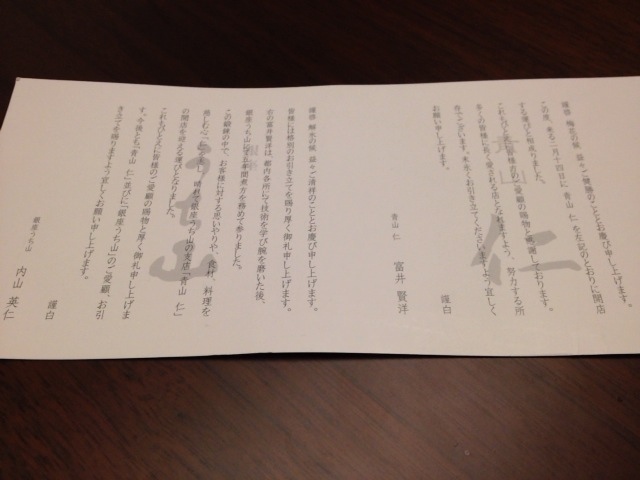 謹啓 梅花の候、益々ご清勝のこととお慶び申し上げます。
この度、来る二月十四日に 青山 仁 を左記のとおりに開店
する運びと相成りました。
これもひとえに皆様方のご愛顧の賜物と感謝しております。
多くの皆様に永く愛される店となれますよう、努力する所
存でございます。末永くお引き立てくださいますよう宜しく
お願い申し上げます。
謹白
青山 仁 富井 賢洋
青山
仁
謹啓 解氷の候、益々ご清祥のこととお慶び申し上げます。
皆様には格別のお引き立てを賜り厚く御礼申し上げます。
右の富井賢洋は、都内各所にて技術を学び腕を磨いた後、
銀座うち山にて五年間煮方を務めて参りました。
この鍛錬の中で、お客様に対する思いやりや、食材、料理を
慈しむ心「仁」を
晴れて銀座うち山の支店「青山 仁」
の開店を迎える運びとなりました。
これもひとえに皆様のご愛顧の賜物と厚く御礼申し上げま
す。今後とも、「青山 仁」並びに「銀座うち山」のご愛顧、お引
き立てを賜りますよう宜しくお願い申し上げます。
謹白
銀座うち山 内山 英仁
銀座
うち山